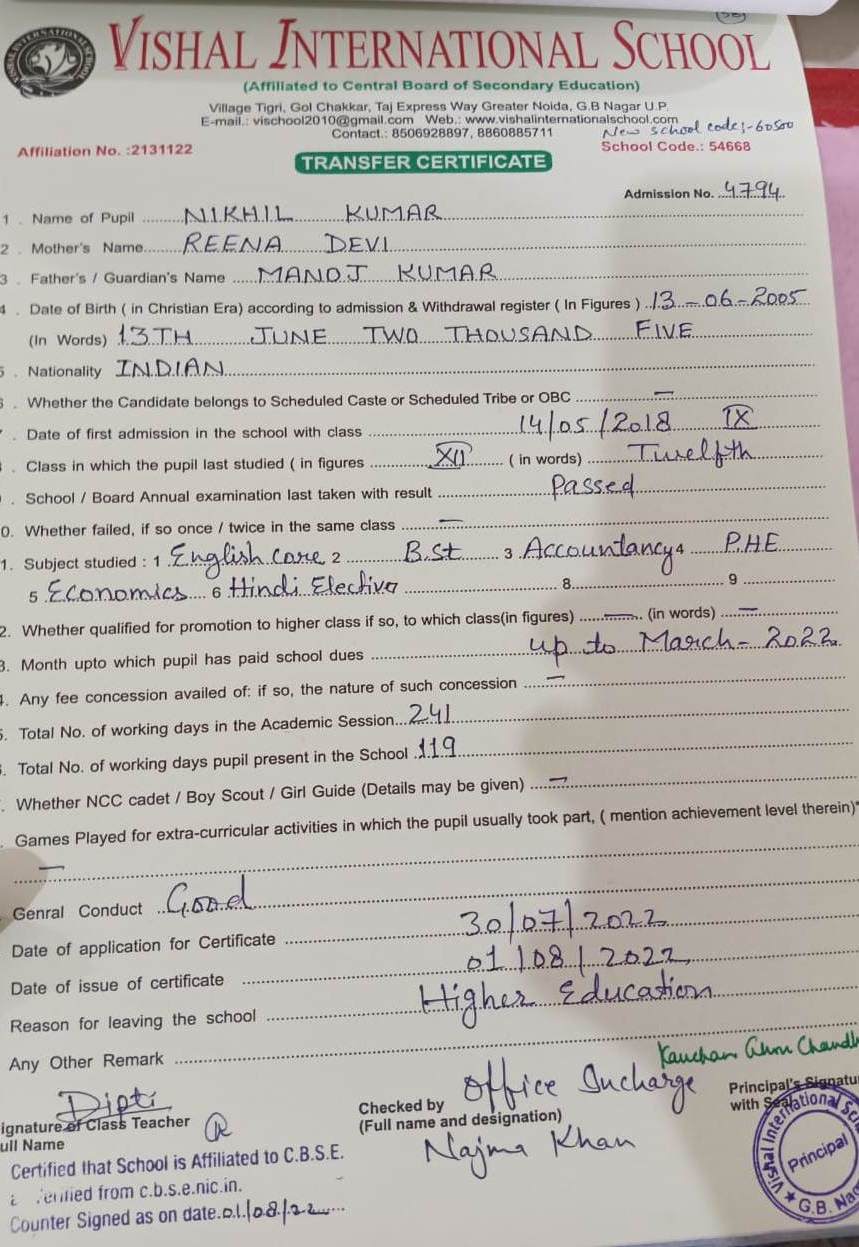 VISHAL INTERNATIONAL SCHOOL
(Affiliated to Central Board of Secondary Education)
Village Tigri, Gol Chakkar, Taj Express Way Greater Noida, G.B Nagar U.P.
E-mail.: vischool2010@gmail.com Web.: www.vishalinternationalschool.com
Contact.: 8506928897, 8860885711
New school code:- 60500
Affiliation No. :2131122
School Code.: 54668
TRANSFER CERTIFICATE
Admission No. 4794
1 . Name of Pupil NIKHIL KUMAR
2 . Mother's Name REENA DEVI
3 . Father's / Guardian's Name MANOJ KUMAR
4 . Date of Birth ( in Christian Era) according to admission & Withdrawal register ( In Figures ) 13-06-2005
(In Words) 13TH JUNE TWO THOUSAND FIVE
5 . Nationality INDIAN
. Whether the Candidate belongs to Scheduled Caste or Scheduled Tribe or OBC —
. Date of first admission in the school with class 14/05/2018 IX
. Class in which the pupil last studied ( in figures XII ( in words) Twelfth
. School / Board Annual examination last taken with result Passed
0. Whether failed, if so once / twice in the same class —
1. Subject studied : 1 English core 2 B.St 3 Accountancy 4 P.HE
5 Economics 6 Hindi Elective 8 9
2. Whether qualified for promotion to higher class if so, to which class(in figures) — (in words) —
3. Month upto which pupil has paid school dues up to March - 2022
. Any fee concession availed of: if so, the nature of such concession —
5. Total No. of working days in the Academic Session 241
. Total No. of working days pupil present in the School 119
. Whether NCC cadet / Boy Scout / Girl Guide (Details may be given) —
. Games Played for extra-curricular activities in which the pupil usually took part, ( mention achievement level therein)
—
Genral Conduct Good
Date of application for Certificate 30/07/2022
Date of issue of certificate 01/08/2022
Reason for leaving the school Higher Education
Any Other Remark
Dipti
ignature of Class Teacher
ull Name
Checked by Office Incharge
(Full name and designation)
Najma Khan
Principal's Signatu
with Seal
Vishal International Sch
Principal
G.B. Nag
Certified that School is Affiliated to C.B.S.E.
from c.b.s.e.nic.in.
Counter Signed as on date. 01/08/22